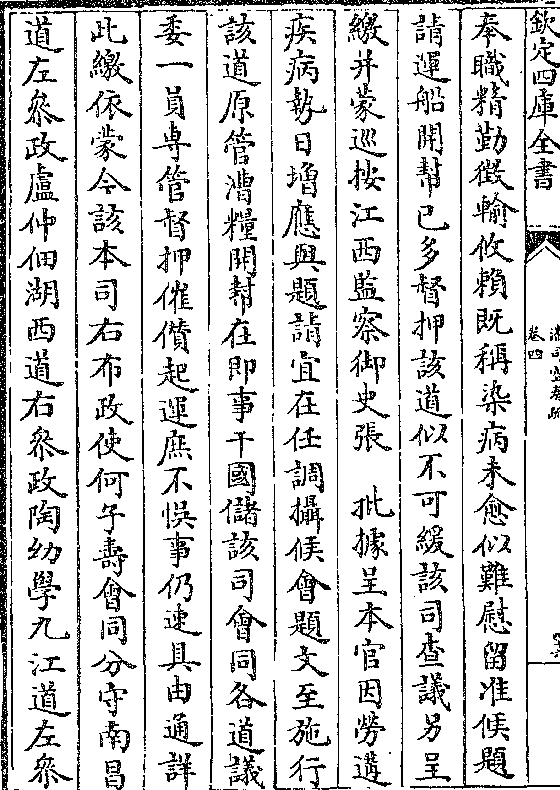 欽定四庫全書
卷四
奉職精勤徵輸攸賴既稱染病未愈似難慰留准候題
請運船開幫已多督押該道似不可緩該司查議另呈
繳并蒙巡按江西監察御史張　批據呈本官因勞遘
疾病勢日增應與題請宜在任調攝候會題文至施行
該道原管漕糧開幫在即事干國儲該司會同各道議
委一員專管督押催儹起運庶不悞事仍速具由通詳
此繳依蒙今該本司右布政使何子壽會同分守南昌
道左參政盧仲佃湖西道右參政陶幼學九江道左參